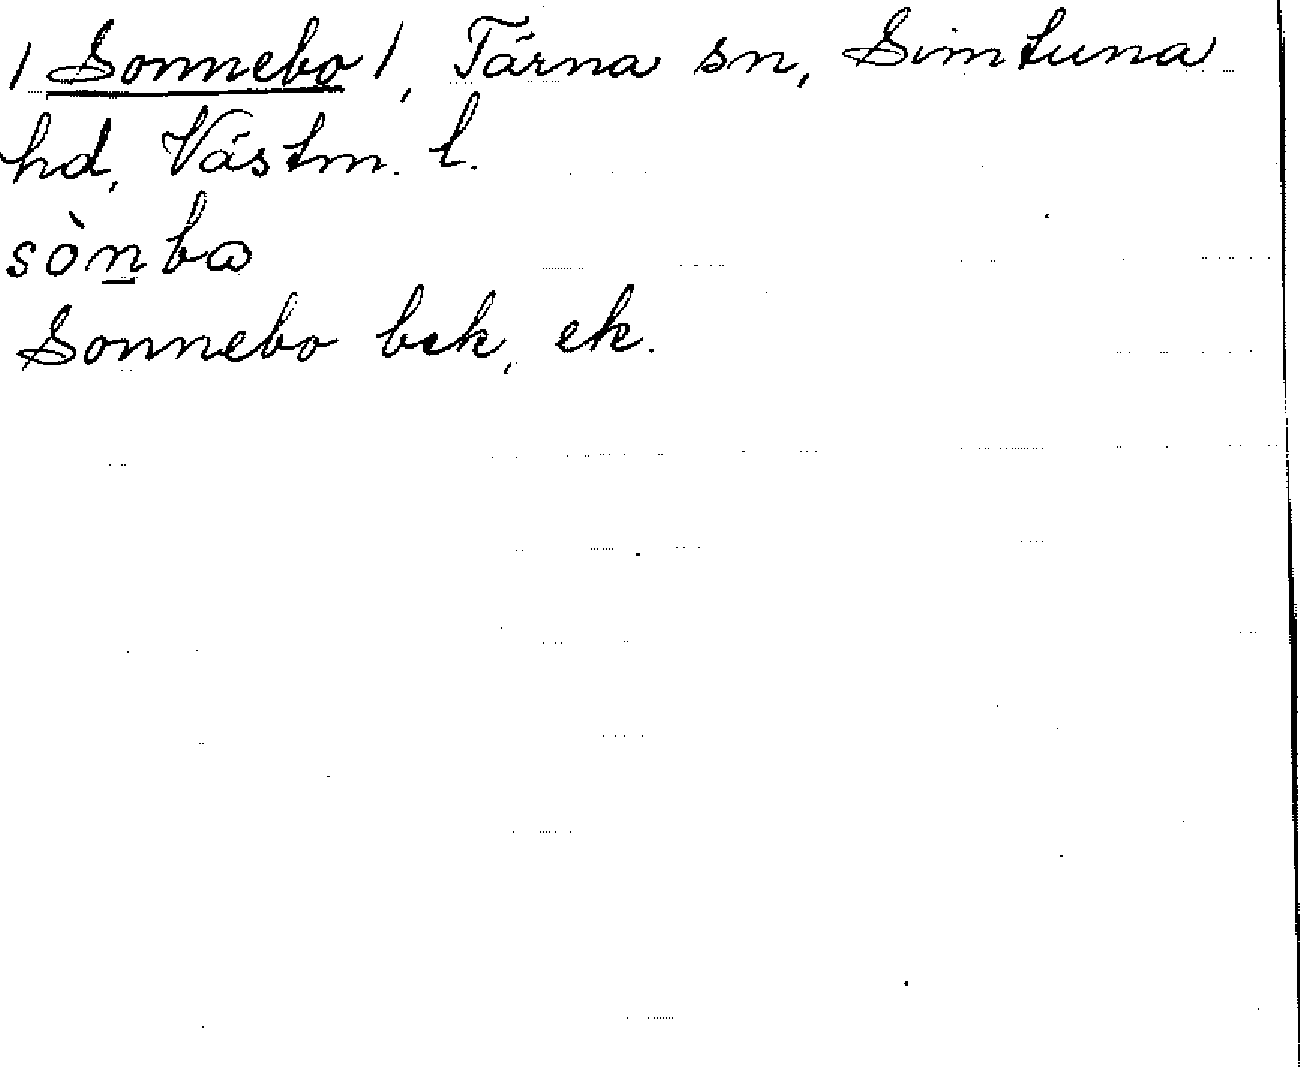 /Sonnebo/, Tärna sn, Simtuna
hd, Västm. l.
sònba
Sonnebo bek, ek.